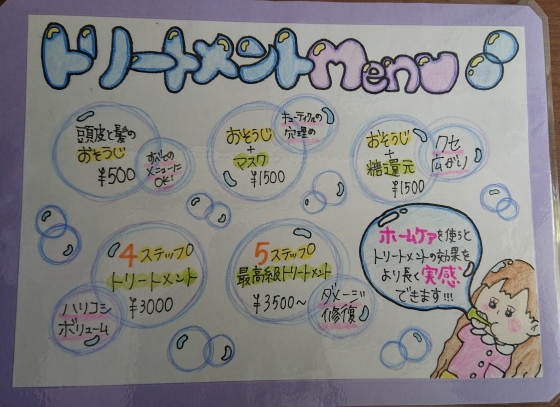 トリートメントMenu
頭皮と髪の
おそうじ
¥500
すべての
メニューに
OK!
おそうじ
+
マスク
¥1500
キューティクルの
穴埋め
おそうじ
+
糖還元
¥1500
クセ
広がり
4ステップ
トリートメント
¥3000
ハリコシ
ボリューム
5ステップ
最高級トリートメント
¥3500〜
ダメージ
修復
ホームケアを使うと
トリートメントの効果を
より長く実感
できます!!!